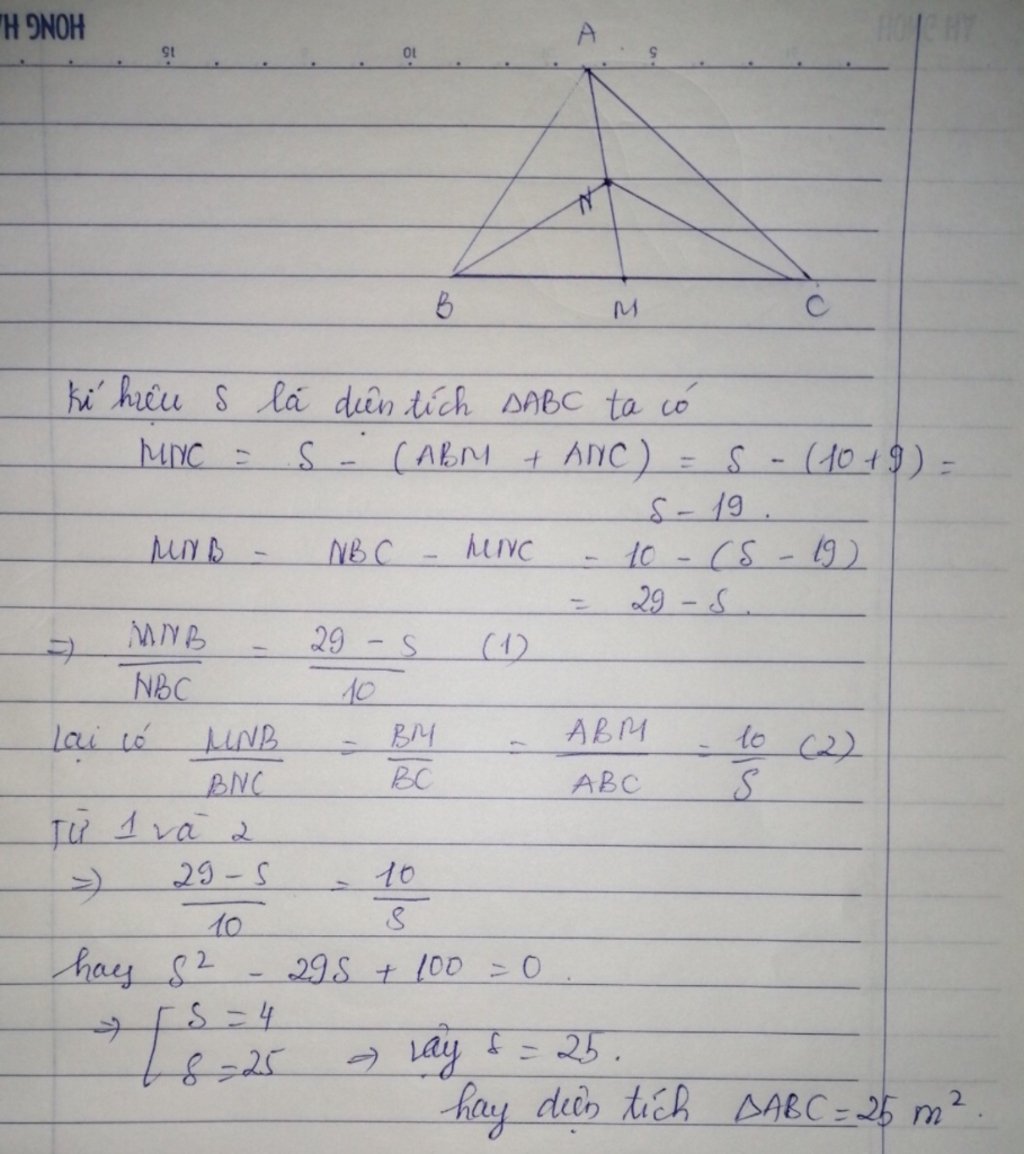 HONG HA
15 10 5
A
N
B M C
Kí hiệu S là diện tích ΔABC ta có
MNC = S - (ABM + ANC) = S - (10+9) =
S - 19.
MNB = NBC - MNC = 10 - (S - 19)
= 29 - S.
=> MNB/NBC = 29 - S/10 (1)
Lại có MNB/BNC = BM/BC = ABM/ABC = 10/S (2)
Từ 1 và 2
=> 29 - S/10 = 10/S
hay S² - 29S + 100 = 0.
=> [ S = 4
S = 25 => vậy S = 25.
hay diện tích ΔABC = 25 m².